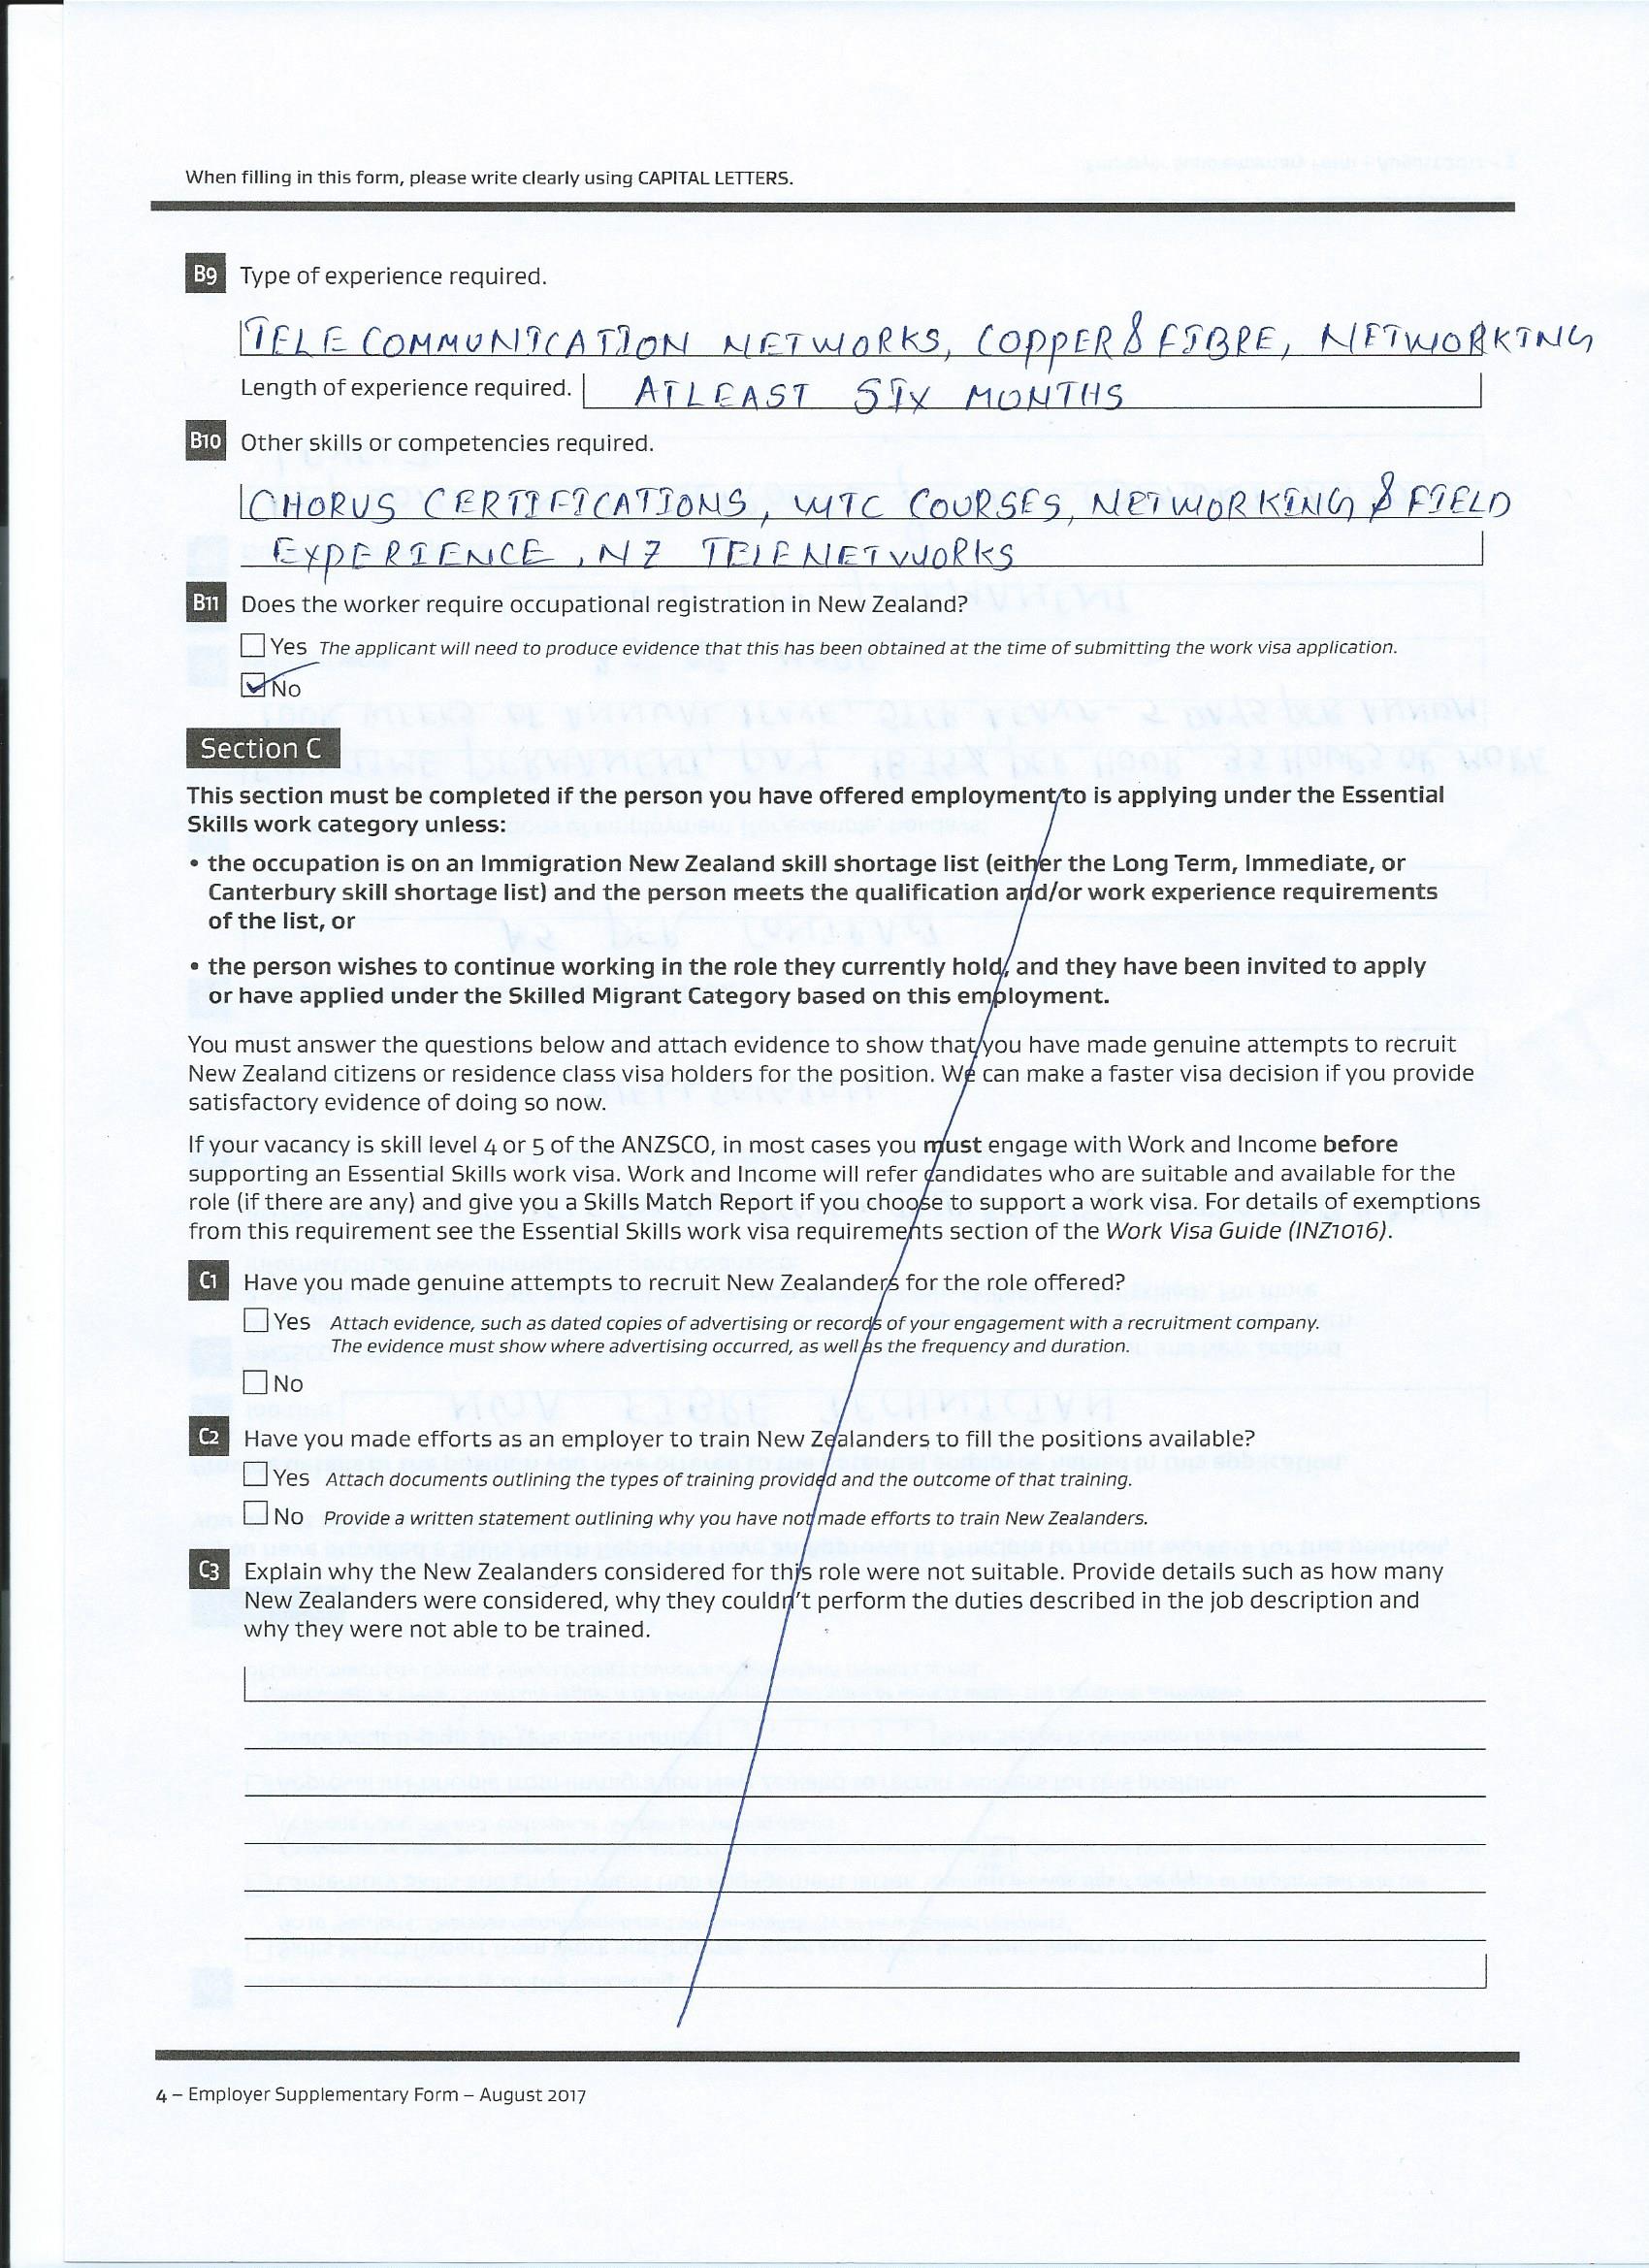 When filling in this form, please write clearly using CAPITAL LETTERS.
B9 Type of experience required.
TELECOMMUNICATION NETWORKS, COPPER & FIBRE, NETWORKING
Length of experience required. ATLEAST SIX MONTHS
B10 Other skills or competencies required.
CHORUS CERTIFICATIONS, WTC COURSES, NETWORKING & FIELD
EXPERIENCE, NZ TELENETWORKS
B11 Does the worker require occupational registration in New Zealand?
Yes The applicant will need to produce evidence that this has been obtained at the time of submitting the work visa application.
No
Section C
This section must be completed if the person you have offered employment to is applying under the Essential
Skills work category unless:
• the occupation is on an Immigration New Zealand skill shortage list (either the Long Term, Immediate, or
Canterbury skill shortage list) and the person meets the qualification and/or work experience requirements
of the list, or
• the person wishes to continue working in the role they currently hold, and they have been invited to apply
or have applied under the Skilled Migrant Category based on this employment.
You must answer the questions below and attach evidence to show that you have made genuine attempts to recruit
New Zealand citizens or residence class visa holders for the position. We can make a faster visa decision if you provide
satisfactory evidence of doing so now.
If your vacancy is skill level 4 or 5 of the ANZSCO, in most cases you must engage with Work and Income before
supporting an Essential Skills work visa. Work and Income will refer candidates who are suitable and available for the
role (if there are any) and give you a Skills Match Report if you choose to support a work visa. For details of exemptions
from this requirement see the Essential Skills work visa requirements section of the Work Visa Guide (INZ1016).
C1 Have you made genuine attempts to recruit New Zealanders for the role offered?
Yes Attach evidence, such as dated copies of advertising or records of your engagement with a recruitment company.
The evidence must show where advertising occurred, as well as the frequency and duration.
No
C2 Have you made efforts as an employer to train New Zealanders to fill the positions available?
Yes Attach documents outlining the types of training provided and the outcome of that training.
No Provide a written statement outlining why you have not made efforts to train New Zealanders.
C3 Explain why the New Zealanders considered for this role were not suitable. Provide details such as how many
New Zealanders were considered, why they couldn't perform the duties described in the job description and
why they were not able to be trained.
4 – Employer Supplementary Form – August 2017